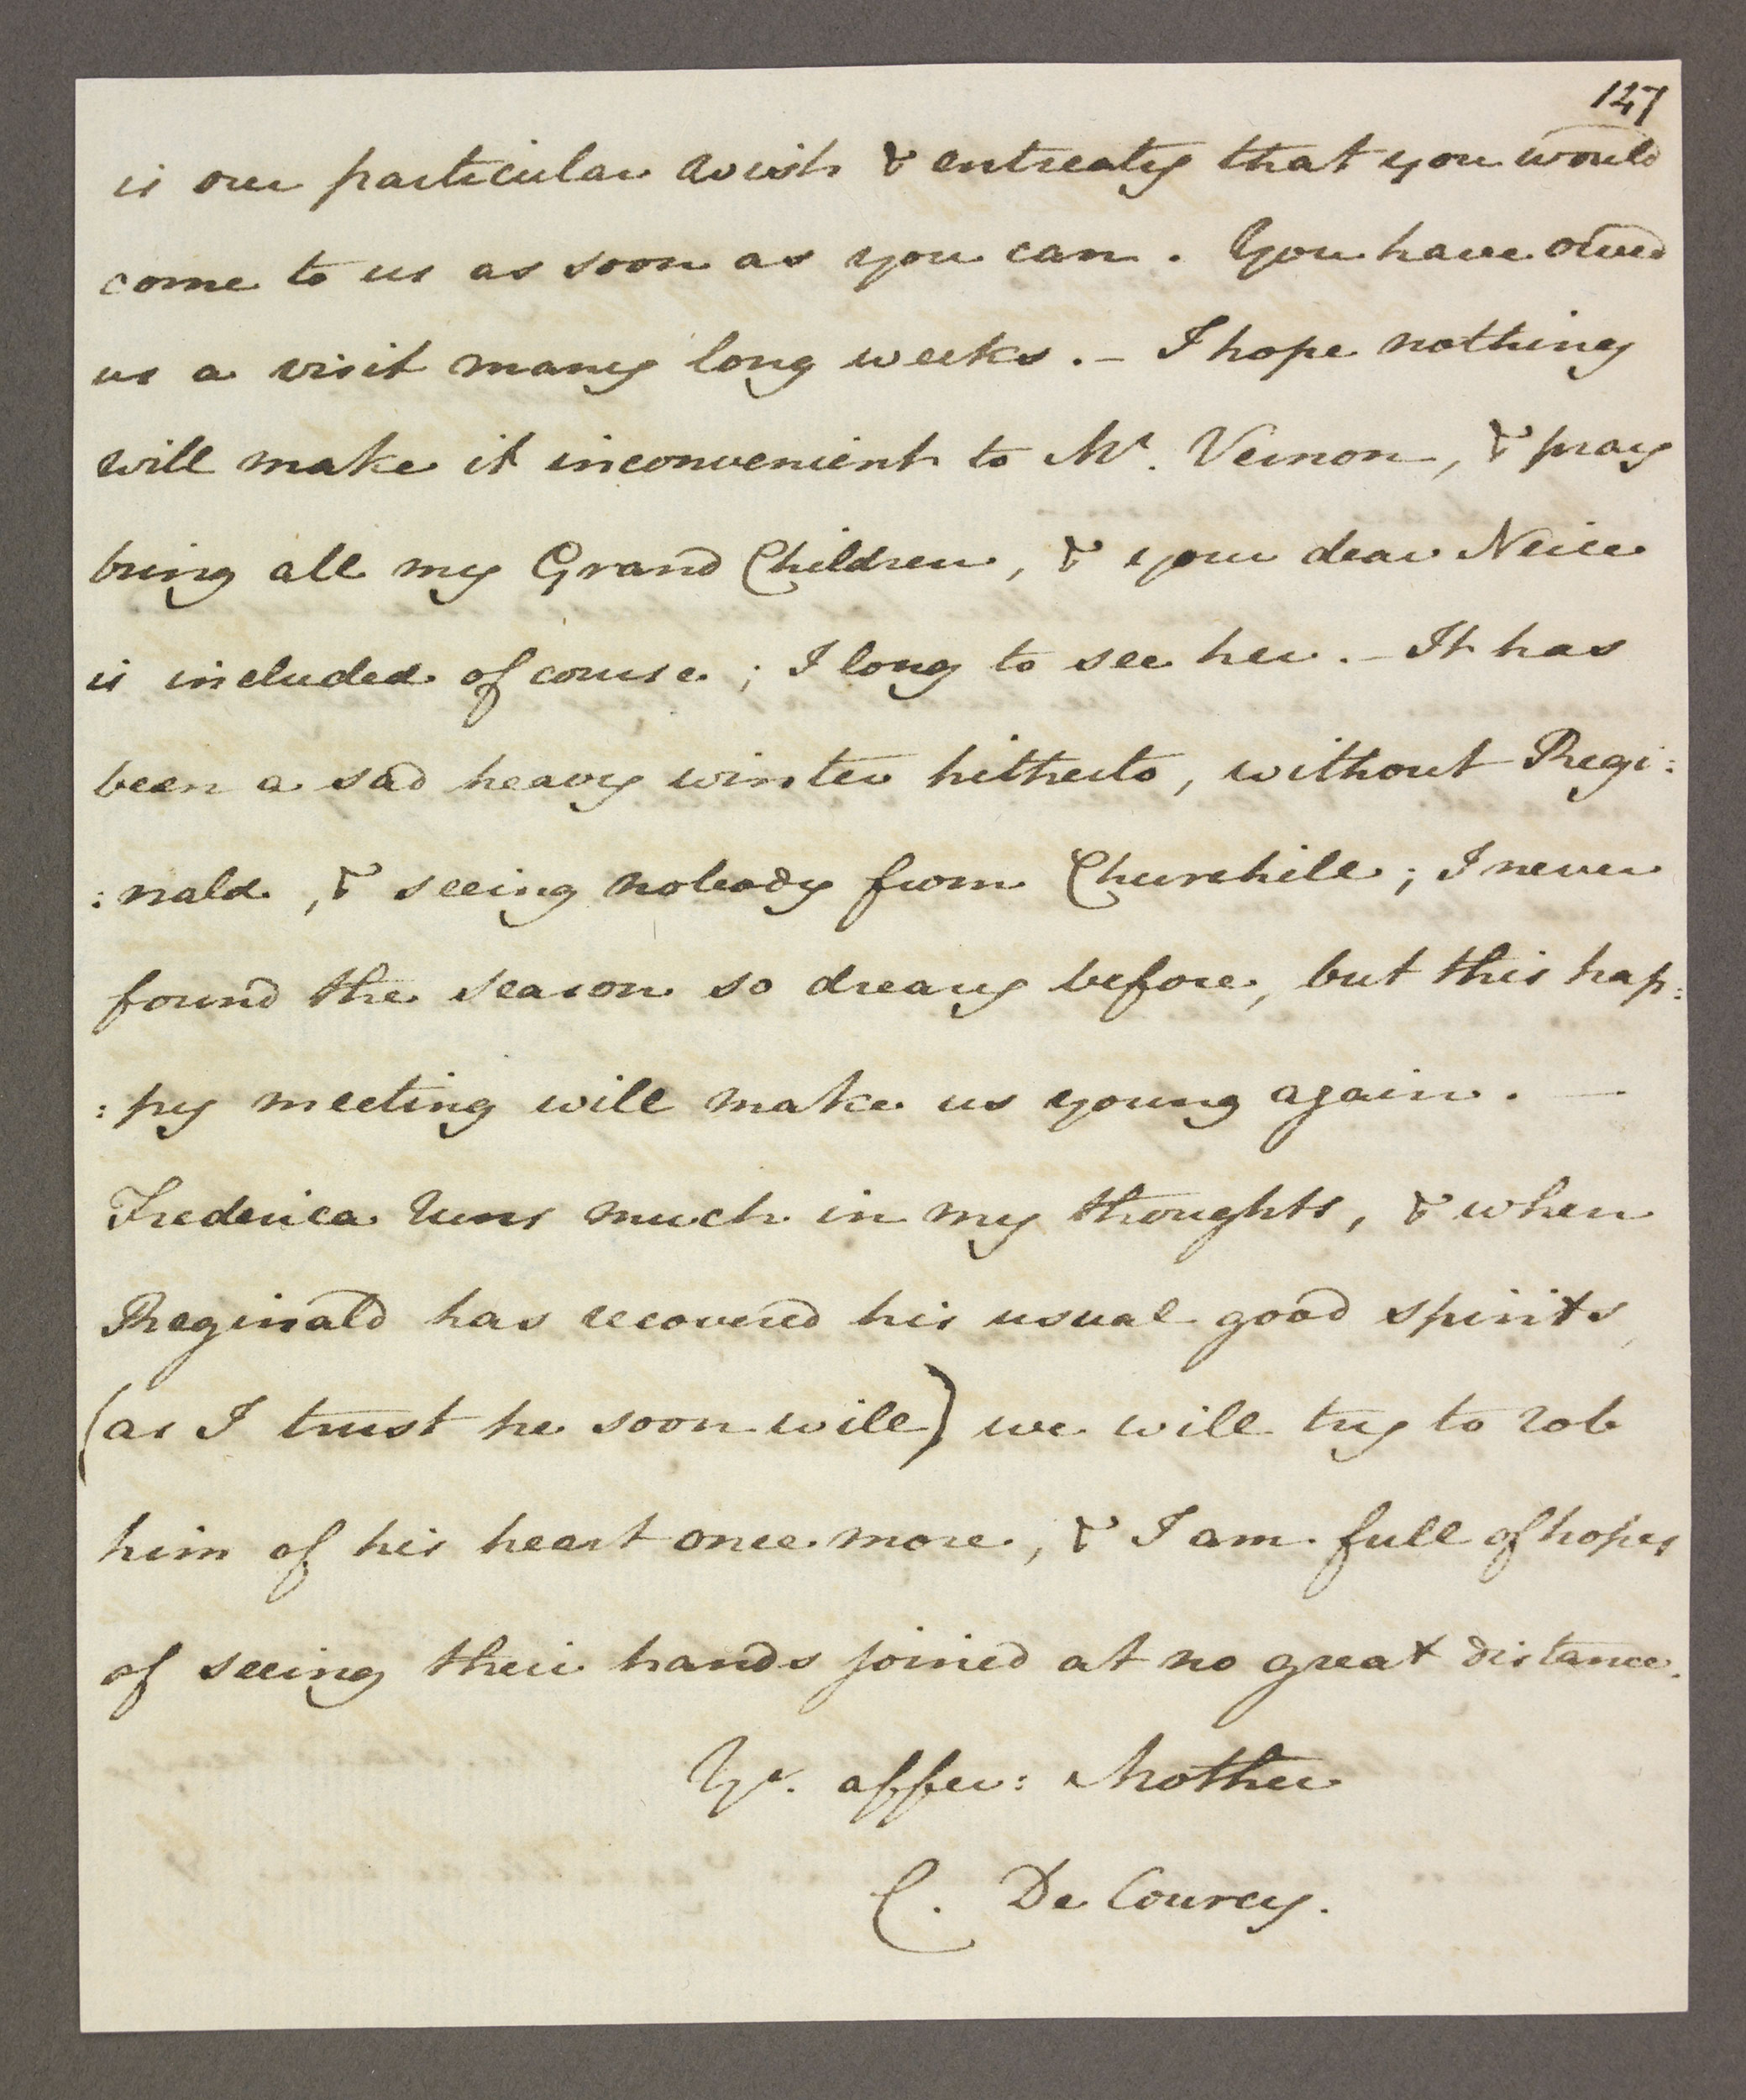 147
is our particular wish & entreaty that you would
come to us as soon as you can. You have owed
us a visit many long weeks. – I hope nothing
will make it inconvenient to Mr. Vernon, & pray
bring all my Grand Children, & your dear Neice
is included of course; I long to see her. – It has
been a sad heavy winter hitherto, without Regi:
:nald, & seeing nobody from Churchill; I never
found the season so dreary before, but this hap:
:py meeting will make us young again. —
Frederica runs much in my thoughts, & when
Reginald has recovered his usual good spirits,
(as I trust he soon will) we will try to rob
him of his heart once more, & I am full of hopes
of seeing their hands joined at no great distance.
Yr. affec: Mother
C. De Courcy.